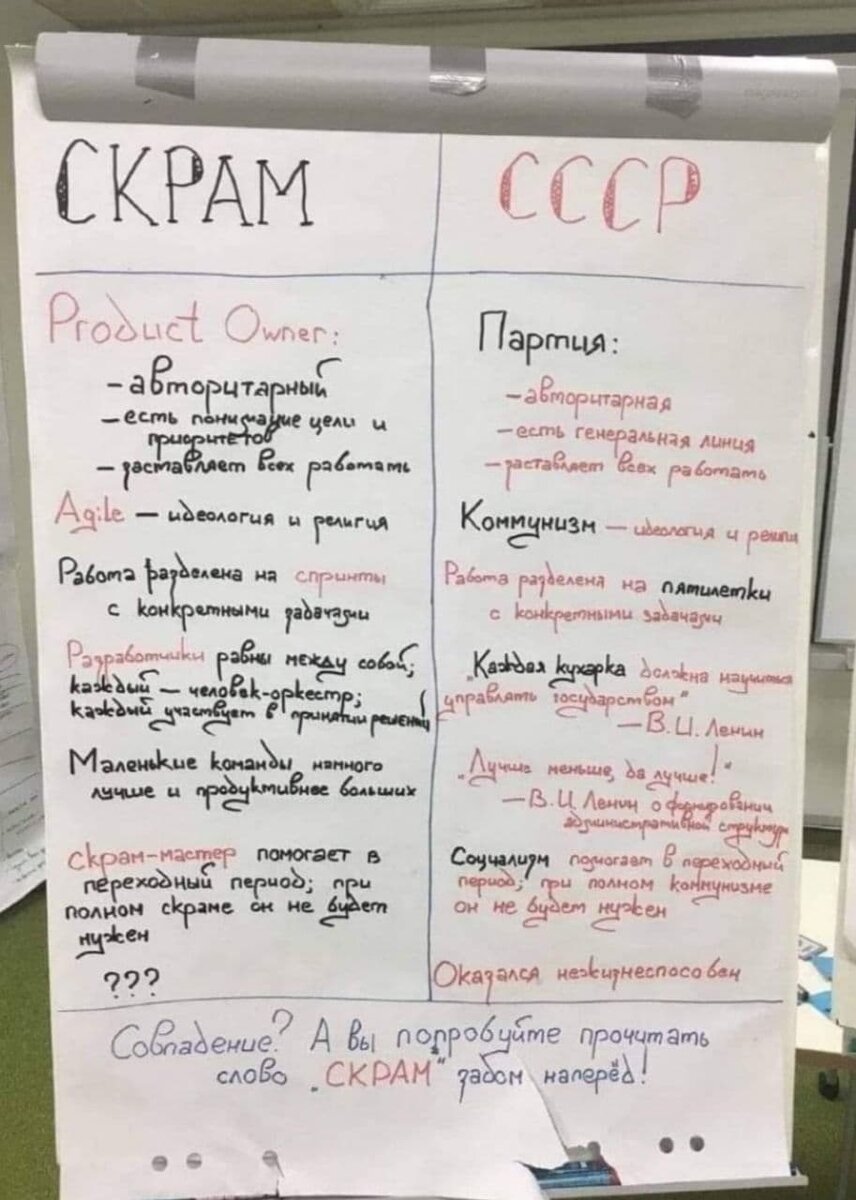 СКРАМ
Product Owner:
- авторитарный
- есть понимание цели и
приоритетов
- заставляет всех работать
Agile — идеология и религия
Работа разделена на спринты
с конкретными задачами
Разработчики равны между собой;
каждый — человек-оркестр;
каждый участвует в принятии решений
Маленькие команды намного
лучше и продуктивнее больших
скрам-мастер помогает в
переходный период; при
полном скраме он не будет
нужен
???
СССР
Партия:
- авторитарная
- есть генеральная линия
- заставляет всех работать
Коммунизм — идеология и религия
Работа разделена на пятилетки
с конкретными задачами
„Каждая кухарка должна научиться
управлять государством"
— В.И. Ленин
„Лучше меньше, да лучше!"
— В.И. Ленин о формировании
административной структуры
Социализм помогает в переходный
период; при полном коммунизме
он не будет нужен
Оказался нежизнеспособен
Совпадение? А вы попробуйте прочитать
слово „СКРАМ" задом наперёд!